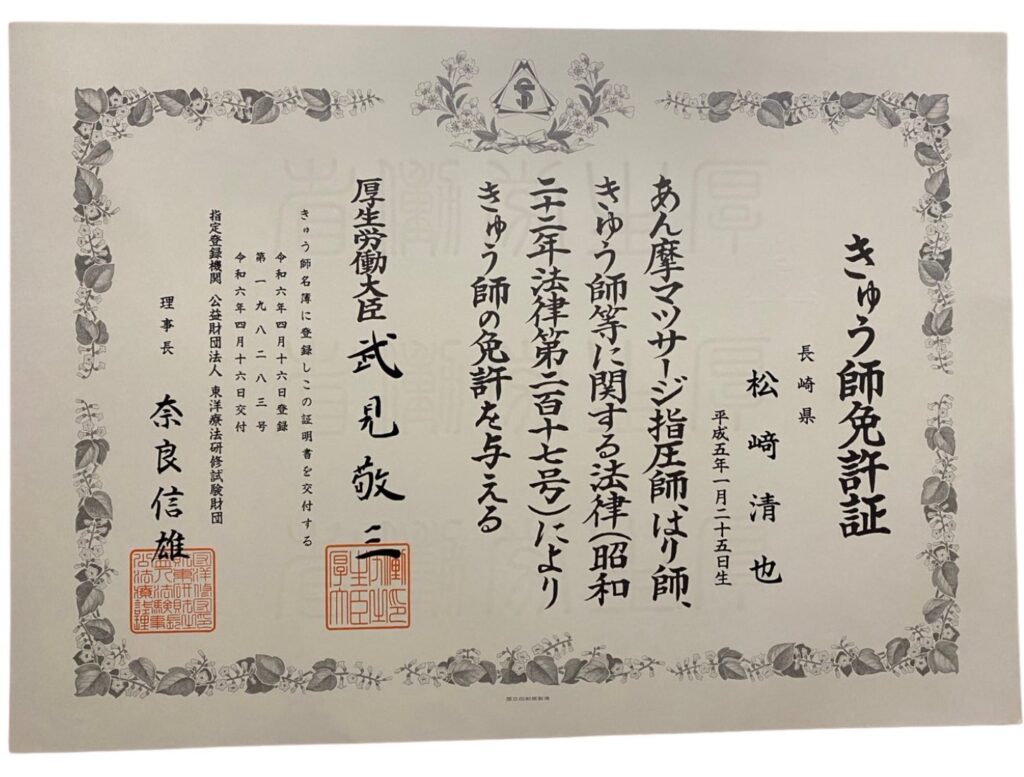 きゅう師免許証
長崎県
松﨑清也
平成五年一月二十五日生
あん摩マツサージ指圧師、はり師、
きゆう師等に関する法律(昭和
二十二年法律第二百十七号)により
きゅう師の免許を与える
厚生労働大臣 武見敬三
きゅう師名簿に登録しこの証明書を交付する
令和六年四月十六日登録
第一九八二八三号
令和六年四月十六日交付
指定登録機関 公益財団法人 東洋療法研修試験財団
理事長 奈良信雄
国立印刷局製造